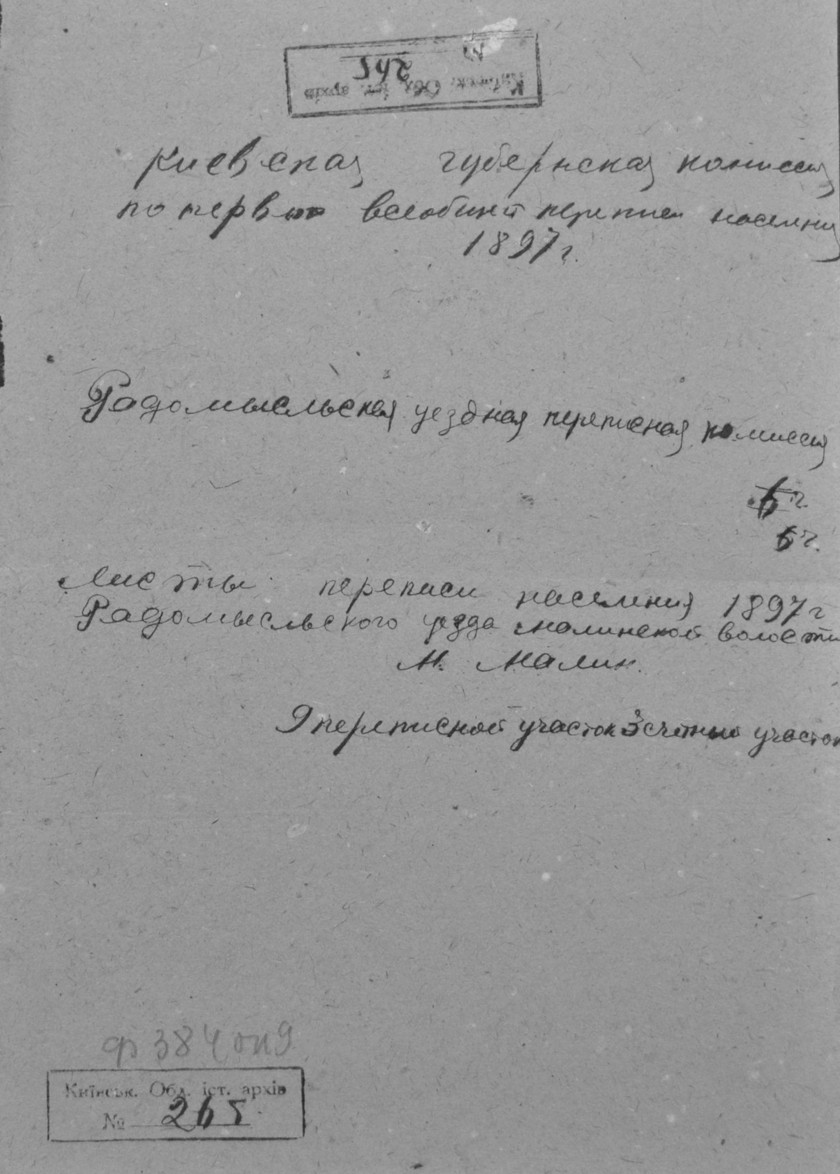 Київськ. Обл. іст. архів
№ 245
Киевская губернская комиссия
по первой всеобщей переписи населения
1897 г.
Радомысльская уездная переписная комиссия
Листы переписи населения 1897 г
Радомысльского уезда Малинской волости
м. Малин.
9 переписной участок 3 счетный участок
ф 384 оп 9
Київськ. Обл. іст. архів
№ 265